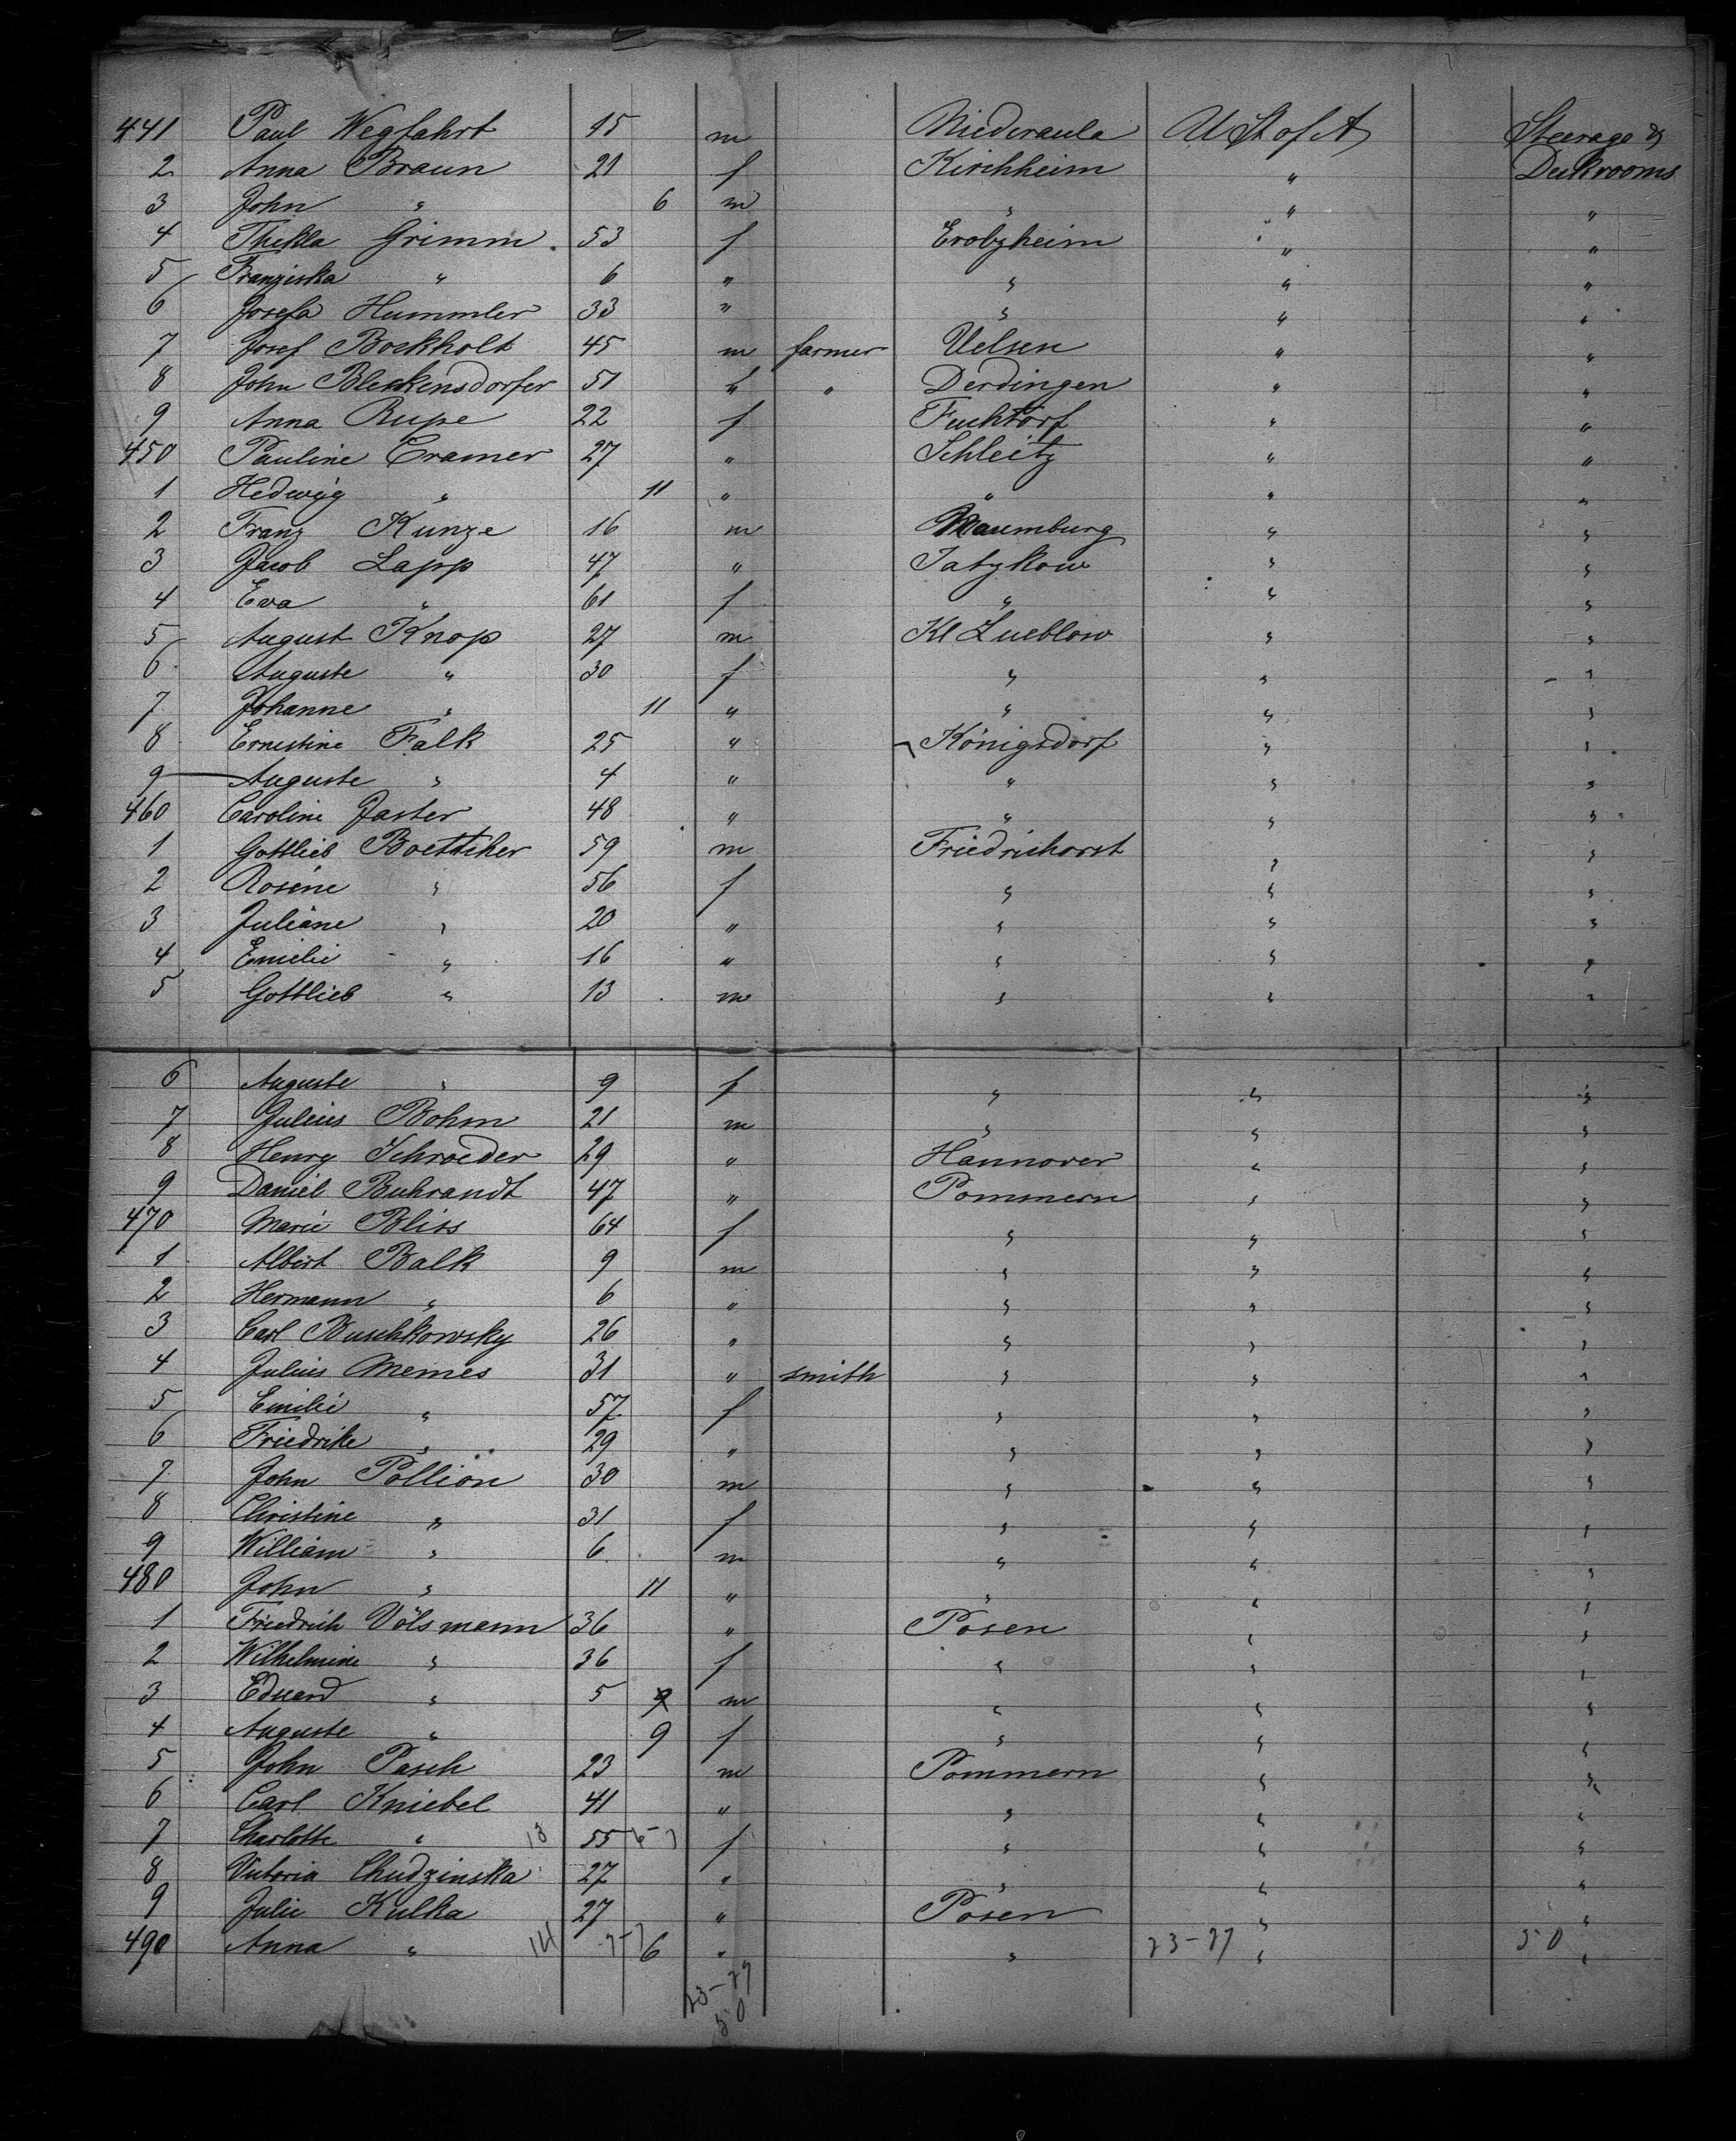 441 Paul Wegfahrt 15 m Niederaula U St of A Steerage &
2 Anna Braun 21 f Kirchheim " Deckrooms
3 John " 6 m " " "
4 Thekla Grimm 53 f Erobzheim " "
5 Franziska " 6 " " " "
6 Josefa Hummler 33 " " " "
7 Josef Bockholt 45 m farmer Uelsen " "
8 John Bleckensdorfer 51 " " Derdingen " "
9 Anna Rupe 22 f Fuchtorf " "
450 Pauline Cramer 27 " Schleitz " "
1 Hedwig " 11 " " " "
2 Franz Kunze 16 m Naumburg " "
3 Jacob Lapp 47 " Jatzkow " "
4 Eva " 61 f " " "
5 August Knop 27 m Kl Lueblow " "
6 Auguste " 30 f " " "
7 Johanne " 11 " " " "
8 Ernestine Falk 25 " Königsdorf " "
9 Auguste " 4 " " " "
460 Caroline Jaster 48 " " " "
1 Gottlieb Boettcher 59 m Friedrichorst " "
2 Rosine " 56 f " " "
3 Juliane " 20 " " " "
4 Emilie " 16 " " " "
5 Gottlieb " 13 m " " "
6 Auguste " 9 f " " "
7 Julius Bohm 21 m " " "
8 Henry Schroeder 29 " Hannover " "
9 Daniel Buhrandt 47 " Pommern " "
470 Marie Bliss 64 f " " "
1 Albert Balk 9 m " " "
2 Hermann " 6 " " " "
3 Carl Buschkowsky 26 " " " "
4 Julius Memes 31 " smith " " "
5 Emilie " 57 f " " "
6 Friedrike " 29 " " " "
7 John Pollion 30 m " " "
8 Christine " 31 f " " "
9 William " 6 m " " "
480 John " 11 " " " "
1 Friedrich Völsmann 36 " Posen " "
2 Wilhelmine " 36 f " " "
3 Eduard " 5 m " " "
4 Auguste " 9 f " " "
5 John Pasch 23 m Pommern " "
6 Carl Kniebel 41 " " " "
7 Charlotte " 13 55 f " " "
8 Victoria Chudzinska 27 " " " "
9 Julie Kulka 27 " Posen " "
490 Anna " 14 6 " " 23-27 " 50 "
23-27
50